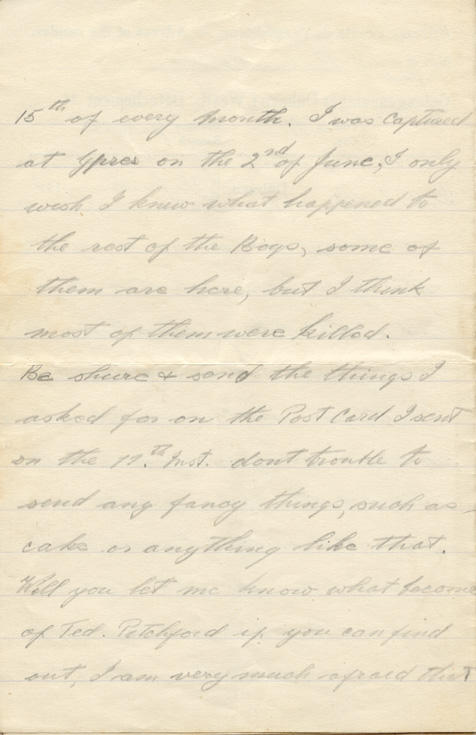 15th of every month. I was captured
at Ypres on the 2nd of June, I only
wish I knew what happened to
the rest of the Boys, some of
them are here, but I think
most of them were killed.
Be shure & send the things I
asked for on the Post Card I sent
on the 17th Inst. dont trouble to
send any fancy things, such as
cake or anything like that.
Will you let me know what become
of Ted. Pitchford if you can find
out, I am very much afraid that